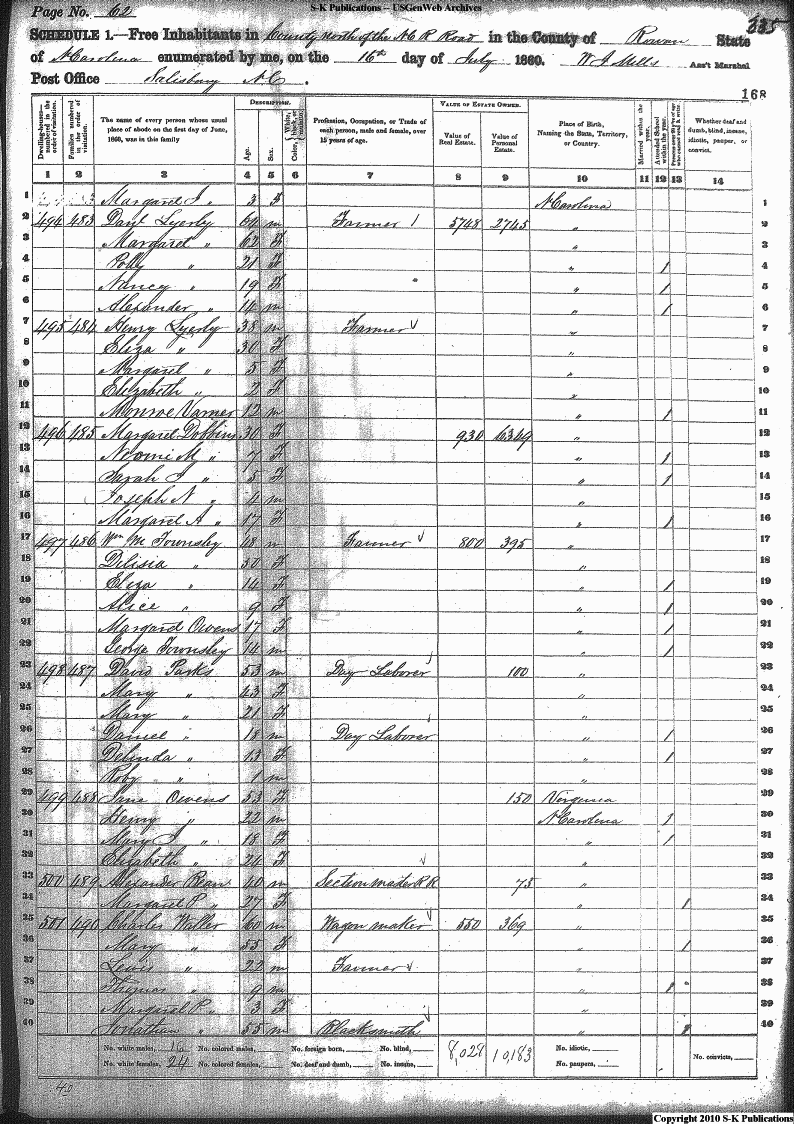 S-K Publications – USGenWeb Archives
Page No. 62
335
SCHEDULE 1.—Free Inhabitants in County north of the N C R Road in the County of Rowan State
of N Carolina enumerated by me, on the 16th day of July 1860. W J Mills Ass't Marshal
Post Office Salisbury N C.
168
Dwelling-houses—numbered in the order of visitation. Families numbered in the order of visitation. The name of every person whose usual place of abode on the first day of June, 1860, was in this family Description. Age. Sex. Profession, Occupation, or Trade of each person, male and female, over 15 years of age. Value of Estate Owned. Value of Real Estate. Value of Personal Estate. Place of Birth, Naming the State, Territory, or Country. Married within the year. Attended School within the year. Whether deaf and dumb, blind, insane, idiotic, pauper, or convict.
1 2 3 4 5 6 7 8 9 10 11 12 13 14
1 Margaret J. 3 F N Carolina 1
2 494 483 Danl Lyerly 64 m Farmer 5748 2745 " 2
3 Margaret " 62 F " 3
4 Polly " 21 F " / 4
5 Nancy " 19 F " / 5
6 Alexander " 14 m " / 6
7 495 484 Henry Lyerly 38 m Farmer " 7
8 Eliza " 30 F " 8
9 Margaret " 5 F " 9
10 Elizabeth " 2 F " 10
11 Monroe Varner 12 m " / 11
12 496 485 Margaret Dobbins 30 F 930 6349 " 12
13 Naomi M " 7 F " / 13
14 Sarah J " 5 F " / 14
15 Joseph N " 4 m " 15
16 Margaret A " 17 F " / 16
17 497 486 Wm Mc Townsley 48 m Farmer 800 395 " 17
18 Delisia " 30 F " 18
19 Eliza " 14 F " / 19
20 Alice " 9 F " / 20
21 Margaret Owens 17 F " / 21
22 George Townsley 14 m " / 22
23 498 487 David Parks 53 m Day Laborer 100 " 23
24 Mary " 43 F " 24
25 Mary " 21 F " 25
26 Daniel " 18 m Day Laborer " / 26
27 Delinda " 13 F " / 27
28 Roby " 1 m " 28
29 499 488 Jane Owens 53 F 150 Virginia 29
30 Henry " 22 m N Carolina / 30
31 Mary J " 18 F " / 31
32 Elizabeth " 24 F " 32
33 500 489 Alexander Bean 40 m Section master R R 75 " 33
34 Margaret P " 27 F " / 34
35 501 490 Charles Waller 60 m Wagon maker 550 369 " 35
36 Mary " 55 F " / 36
37 Lewis " 22 m Farmer " 37
38 Thomas " 9 m " / 38
39 Margaret P " 3 F " 39
40 Jonathan " 55 m Blacksmith " / 40
No. white males, 16 No. colored males, No. foreign born, No. blind, 8,028 10,183 No. idiotic,
No. white females, 24 No. colored females, No. deaf and dumb, No. insane, No. paupers, No. convicts,
40
Copyright 2010 S-K Publications